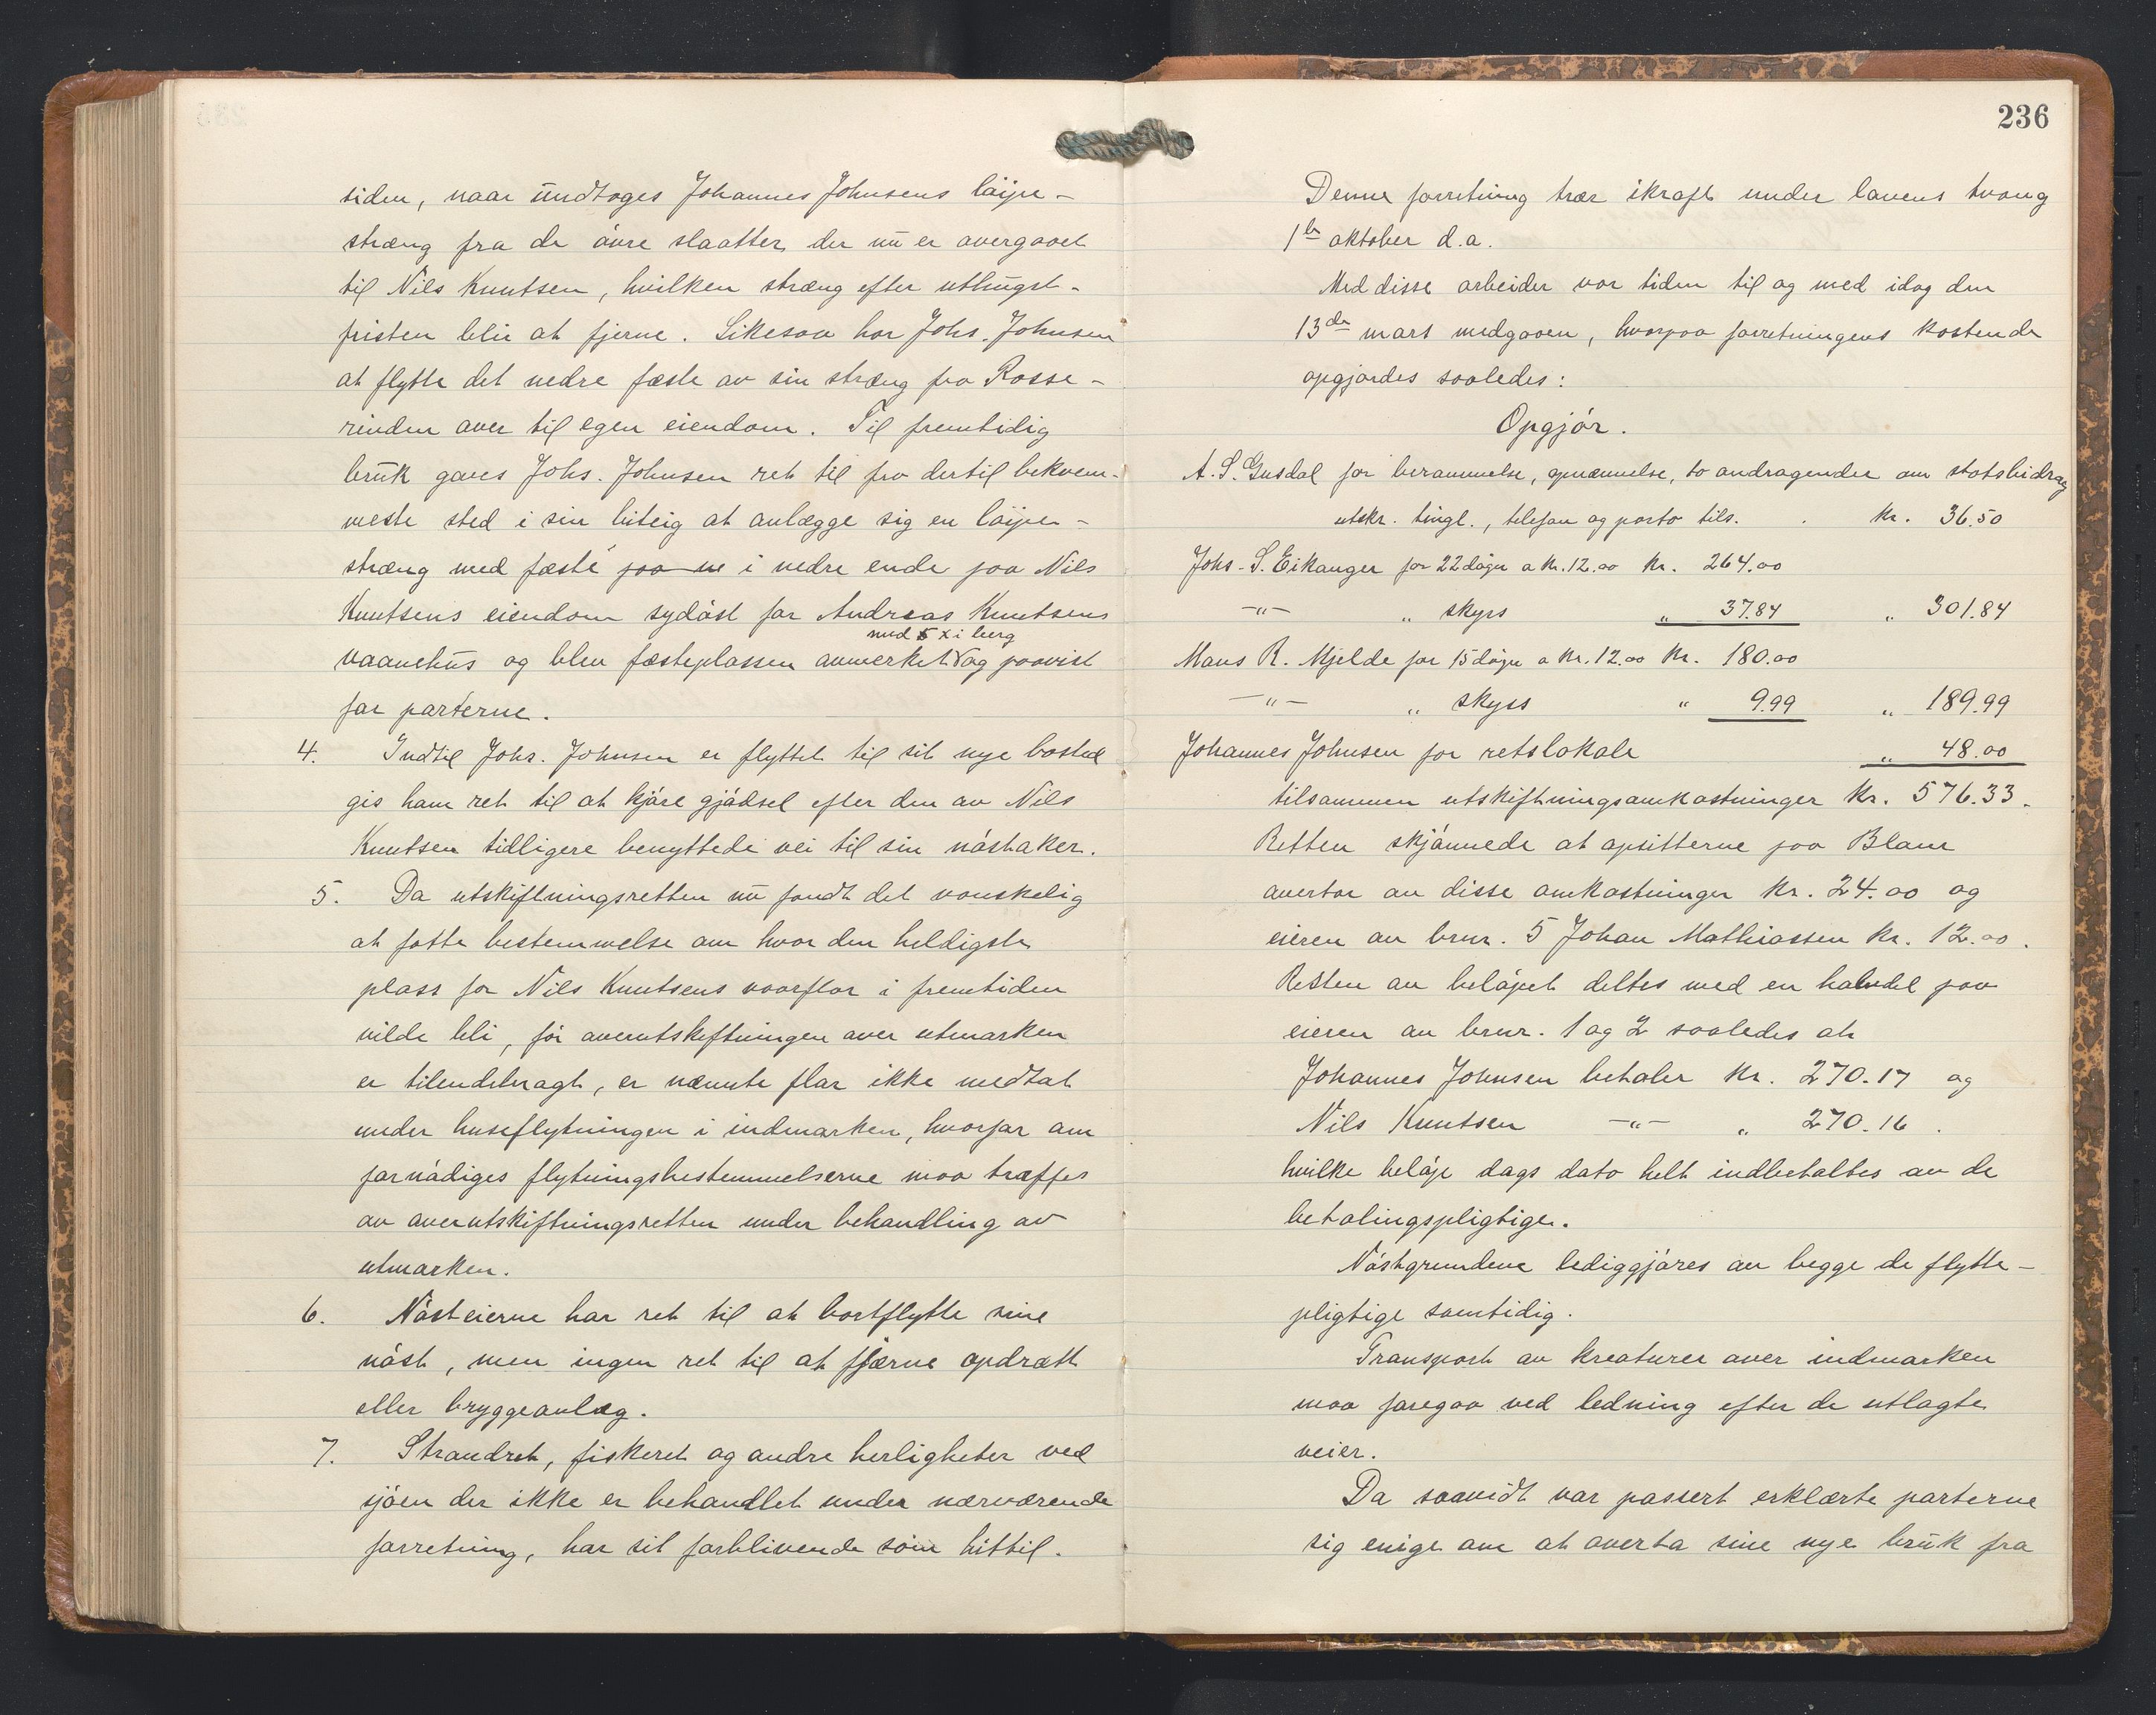 siden, naar undtages Johannes Johnsens löipe-
stræng fra de övre slaatter, der nu er overgaaet
til Nils Knutsen, hvilken stræng efter uthugst-
fristen blir at fjerne. Likesaa har Johs. Johnsen
at flytte det nedre fæste av sin stræng fra Rosse-
rinden over til egen eiendom. Til fremtidig
bruk gaves Johs. Johnsen ret til fra dertil bekvem-
meste sted i sin biteig at anlægge sig en löipe-
stræng med fæste paa ne i nedre ende paa Nils
Knutsens eiendom sydöst for Andreas Knutsens
med 5 x i berg
vaanehus og blev fæsteplassen anmerket og paavist
for parterne.
4. Indtil Johs. Johnsen er flyttet til sit nye bosted
gis ham ret til at kjöre gjödsel efter den av Nils
Knutsen tidligere benyttede vei til sin nöstaker.
5. Da utskiftningsretten nu fandt det vanskelig
at fatte bestemmelse om hvor den heldigste
plass for Nils Knutsens vaarflor i fremtiden
vilde bli, för overutskiftningen over utmarken
er tilendebragt, er nævnte flor ikke medtat
under huseflytningen i indmarken, hvorfor om
fornödiges flytningsbestemmelserne maa træffes
av overutskiftningsretten under behandling av
utmarken.
6. Nösteierne har ret til at bortflytte sine
nöst, men ingen ret til at fjærne opdrætt
eller bryggeanlæg.
7. Strandret, fiskeret og andre herligheter ved
sjöen der ikke er behandlet under nærværende
forretning, har sit forblivende som hittil.
236
Denne forretning trær ikraft under lovens tvang
1ste oktober d.a.
Med disse arbeider var tiden til og med idag den
13de mars medgaaen, hvorpaa forretningens kostende
opgjordes saaledes:
Opgjör.
A. S. Gusdal for berammelse, opnævnelse, to andragender om statsbidrag
utskr. tingl., telefon og porto tils. . kr. 36.50
Johs. S. Eikanger for 22 dögn a kr. 12.00 kr. 264.00
-"- " skyss " 37.84 " 301.84
Mons R. Mjelde for 15 dögn a kr. 12.00 kr. 180.00
-"- " skyss " 9.99 " 189.99
Johannes Johnsen for retslokale " 48.00
tilsammen utskiftningsomkostninger kr. 576.33.
Retten skjönnede at opsitterne paa Blom
overtar av disse omkostninger kr. 24.00 og
eieren av brnr. 5 Johan Mathiassen kr. 12.00.
Resten av belöpet deltes med en halvdel paa
eieren av brnr. 1 og 2 saaledes at
Johannes Johnsen betaler kr. 270.17 og
Nils Knutsen -"- " 270.16.
hvilke belöp dags dato helt indbetaltes av de
betalingspligtige.
Nöstgrundene lediggjöres av begge de flytte-
pligtige samtidig.
Transport av kreaturer over indmarken
maa foregaa ved ledning efter de utlagte
veier.
Da saavidt var passert erklærte parterne
sig enige om at overta sine nye bruk fra